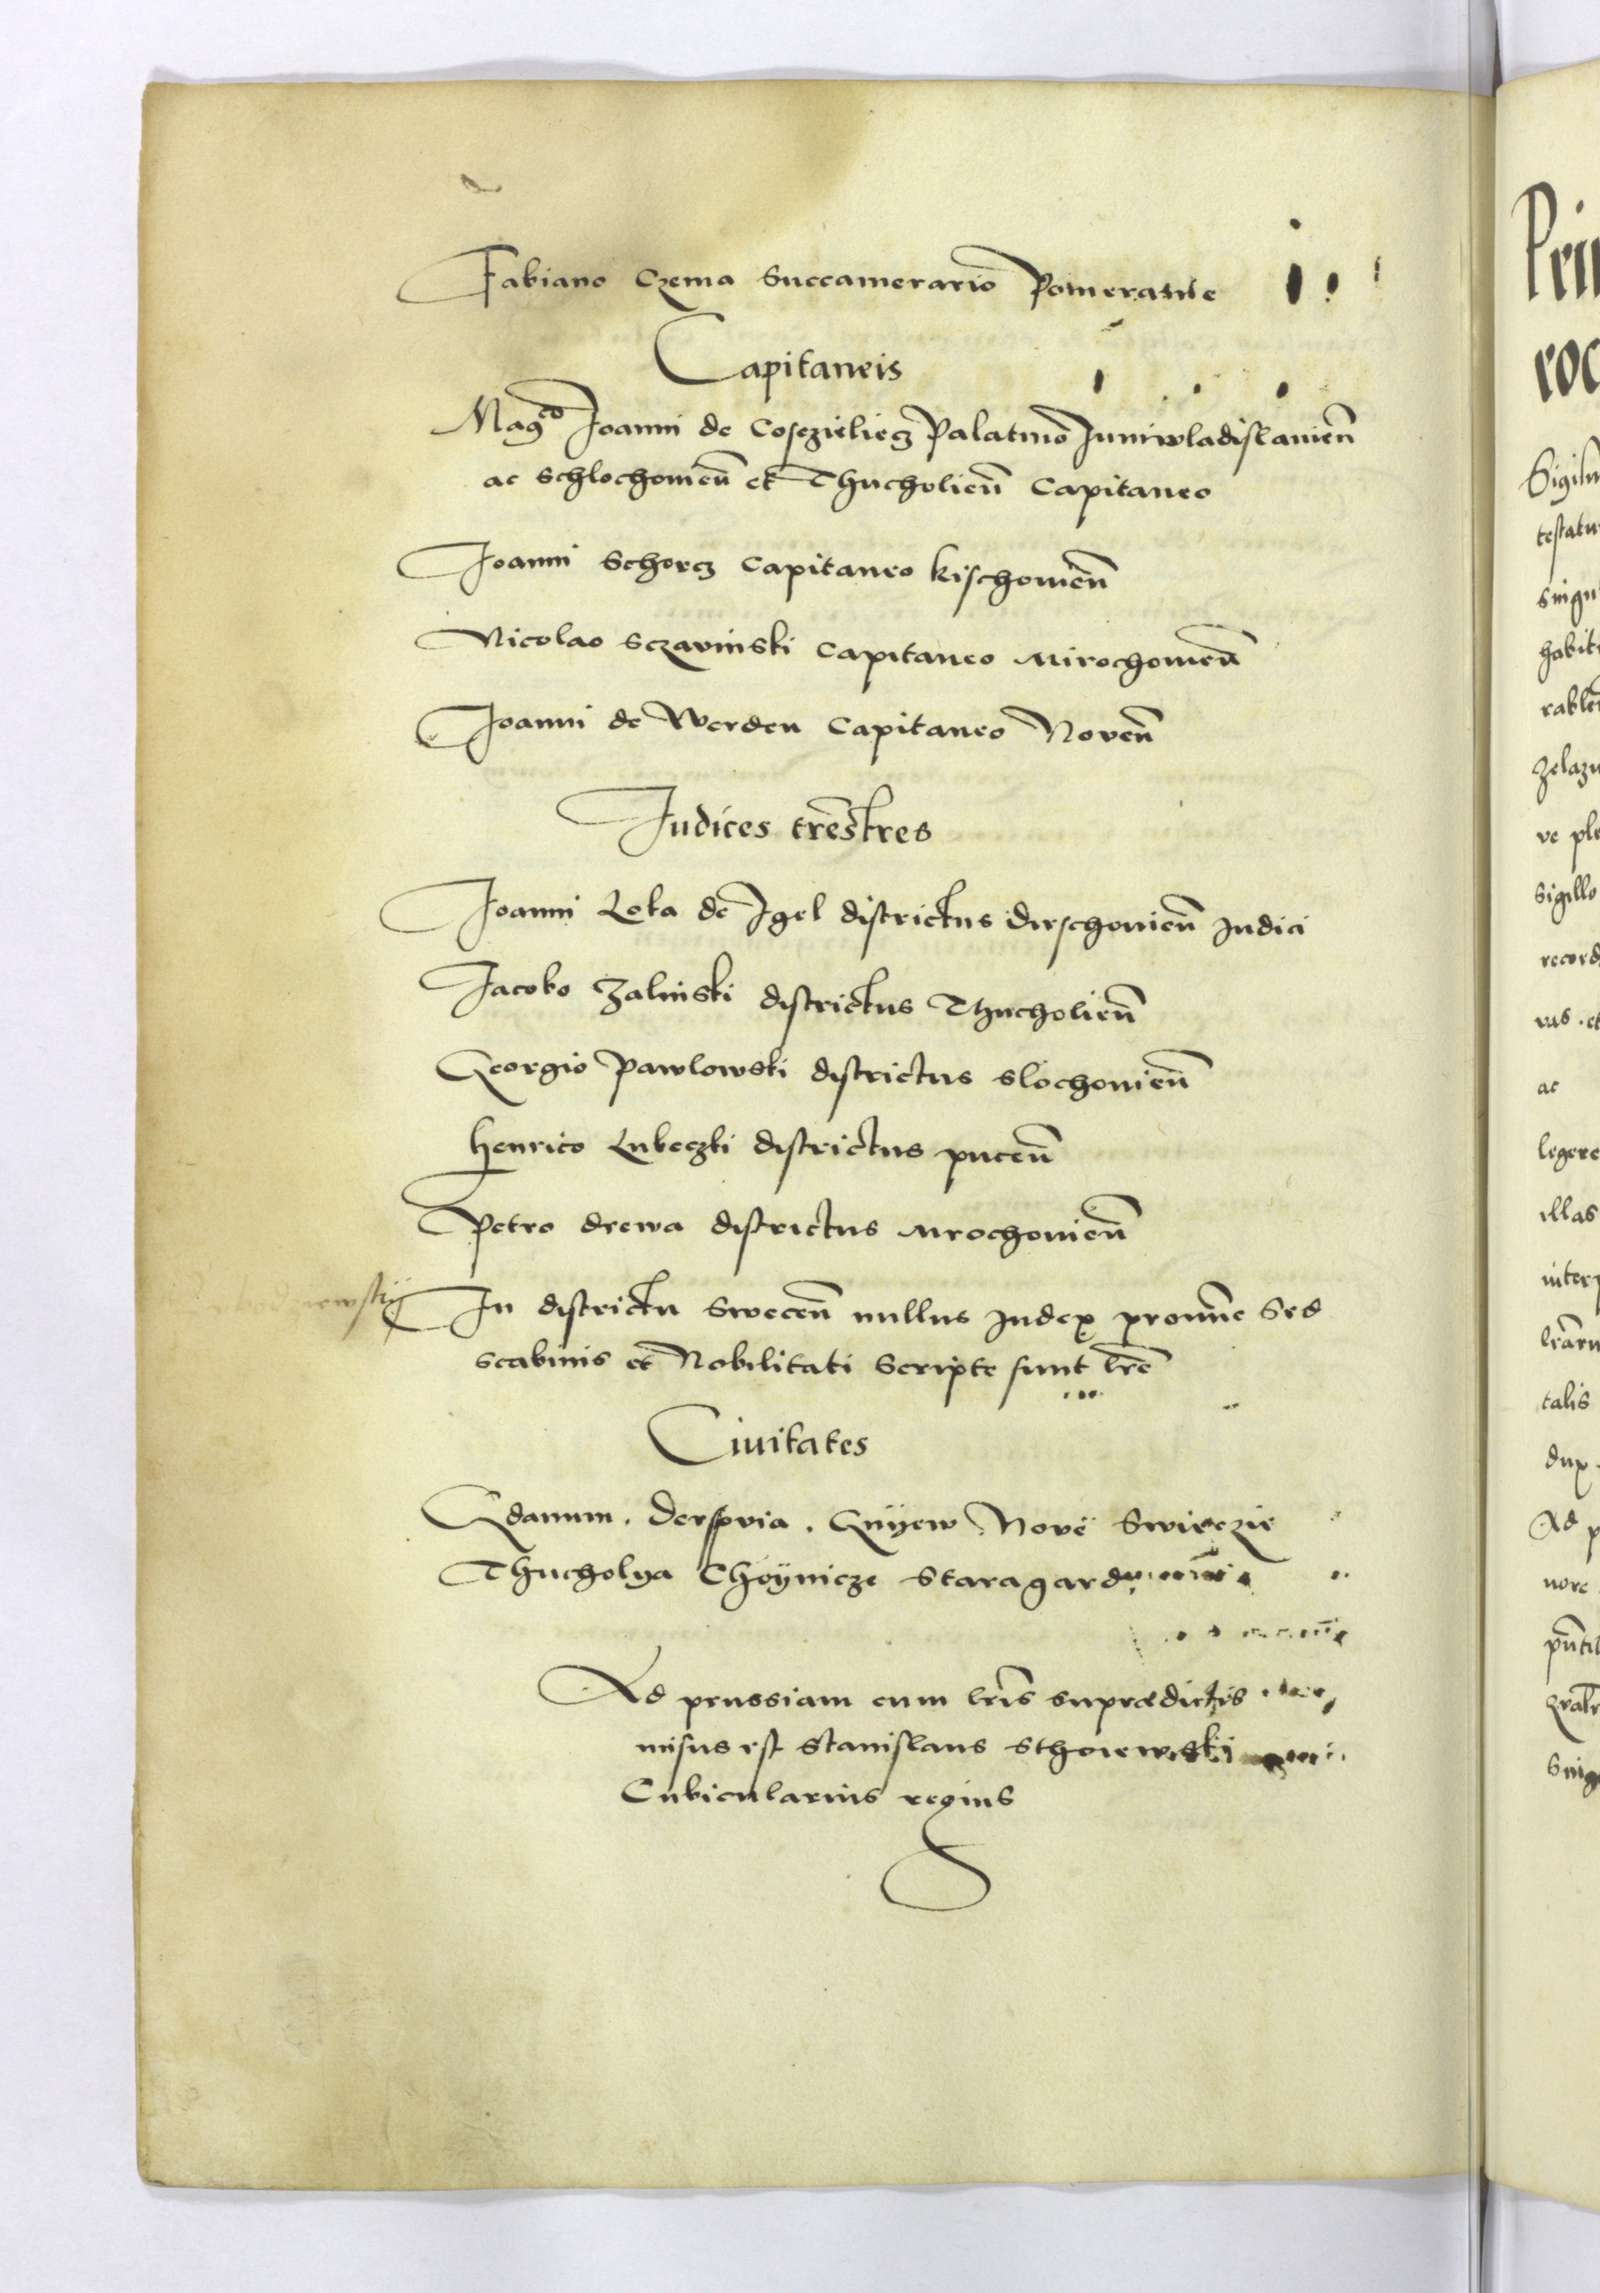 Fabiano Czema Succamerario Pomeranie
Capitaneis
Mag^co Joanni de Cosczieliecz Palatino Juniwladislauien̄
ac Schlochouien̄ et Thucholien̄ Capitaneo
Joanni Schorcz Capitaneo kischouien̄
Nicolao Sczavinski Capitaneo Mirochouien̄
Joanni de Werden Capitaneo Noven̄
Judices trēstres
Joanni Loka de Igel districtus dirschouien̄ Judici
Jacobo Zalinski districtus Thucholien̄
Georgio Pawlowski districtus Slochouien̄
Henrico Lubeczki districtus pucen̄
Petro drewa districtus Mrochouien̄
In districtu Swecen̄ nullus Judex prouin̄e Sed
scabinis et Nobilitati Scripte sunt lrē
Ciuitates
Gdanum . Dersovia . Gnyew Nove Swieczie
Thucholya Choÿnicze Staragard
Ad prussiam cum lrīs suprædictis
misus est Stanislaus Sthoiewski
Cubicularius regius
Pri
roc
Sigism
testatu
singu
habit
rablē
zelazn
ve ple
Sigillo
record
ras . et
ac
legere
illas
inter
lrāru
talis
dux
Ad p
nore